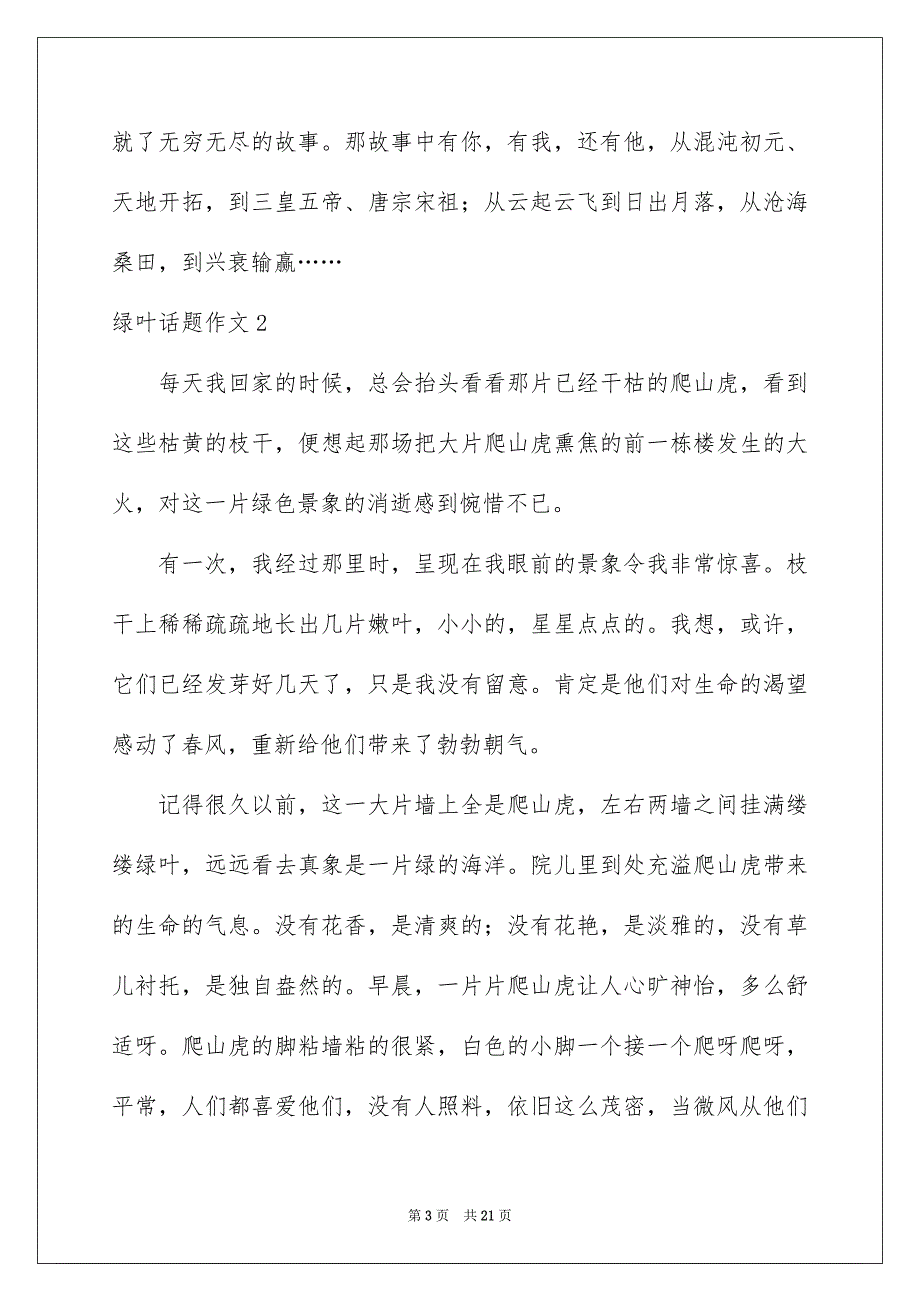 就了无穷无尽的故事。那故事中有你，有我，还有他，从混沌初元、
天地开拓，到三皇五帝、唐宗宋祖；从云起云飞到日出月落，从沧海
桑田，到兴衰输赢……
绿叶话题作文 2
每天我回家的时候，总会抬头看看那片已经干枯的爬山虎，看到
这些枯黄的枝干，便想起那场把大片爬山虎熏焦的前一栋楼发生的大
火，对这一片绿色景象的消逝感到惋惜不已。
有一次，我经过那里时，呈现在我眼前的景象令我非常惊喜。枝
干上稀稀疏疏地长出几片嫩叶，小小的，星星点点的。我想，或许，
它们已经发芽好几天了，只是我没有留意。肯定是他们对生命的渴望
感动了春风，重新给他们带来了勃勃朝气。
记得很久以前，这一大片墙上全是爬山虎，左右两墙之间挂满缕
缕绿叶，远远看去真象是一片绿的海洋。院儿里到处充溢爬山虎带来
的生命的气息。没有花香，是清爽的；没有花艳，是淡雅的，没有草
儿衬托，是独自盎然的。早晨，一片片爬山虎让人心旷神怡，多么舒
适呀。爬山虎的脚粘墙粘的很紧，白色的小脚一个接一个爬呀爬呀，
平常，人们都喜爱他们，没有人照料，依旧这么茂密，当微风从他们
第 3 页 共 21 页